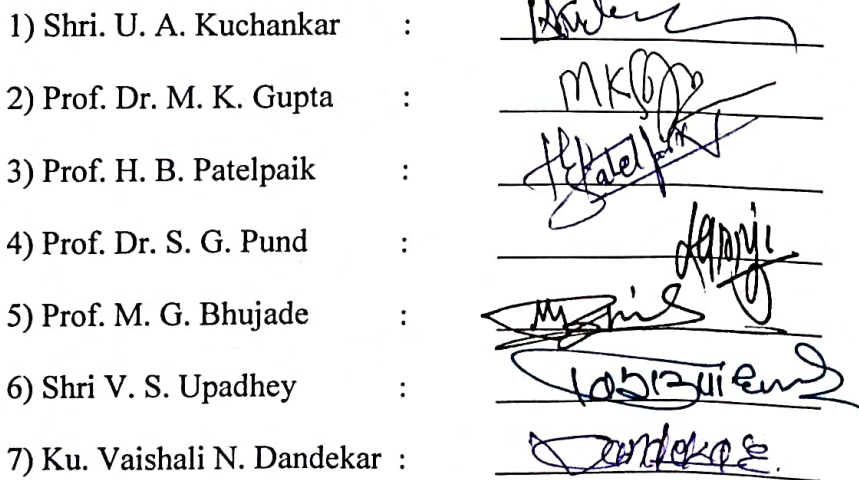 1) Shri. U. A. Kuchankar :
2) Prof. Dr. M. K. Gupta :
3) Prof. H. B. Patelpaik :
4) Prof. Dr. S. G. Pund :
5) Prof. M. G. Bhujade :
6) Shri V. S. Upadhey :
7) Ku. Vaishali N. Dandekar :